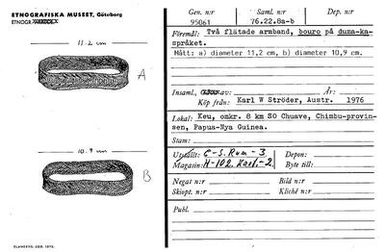 ETNOGRAFISKA MUSEET, Göteborg
11.2 cm
A
10.9 cm
B
Gen.nr
95061
Saml.nr
76.22.8a-b
Dep.nr
Föremål: Två flätade armband, bouro på duma-ka-
språket.
Mått: a) diameter 11,2 cm, b) diameter 10,9 cm.
Insaml. av
År:
Köp från: Karl W Ströder, Austr. 1976
Lokal: Keu, omkr. 8 km SO Chuave, Chimbu-provin-
sen, Papua-Nya Guinea.
Stam:
Uppställt: C-S. Rum-3
Depon:
Magasin: H-102. Kart.-2
Byte till:
Negat nr:
Bild nr:
Skiopt. nr:
Kliché nr:
Publ.